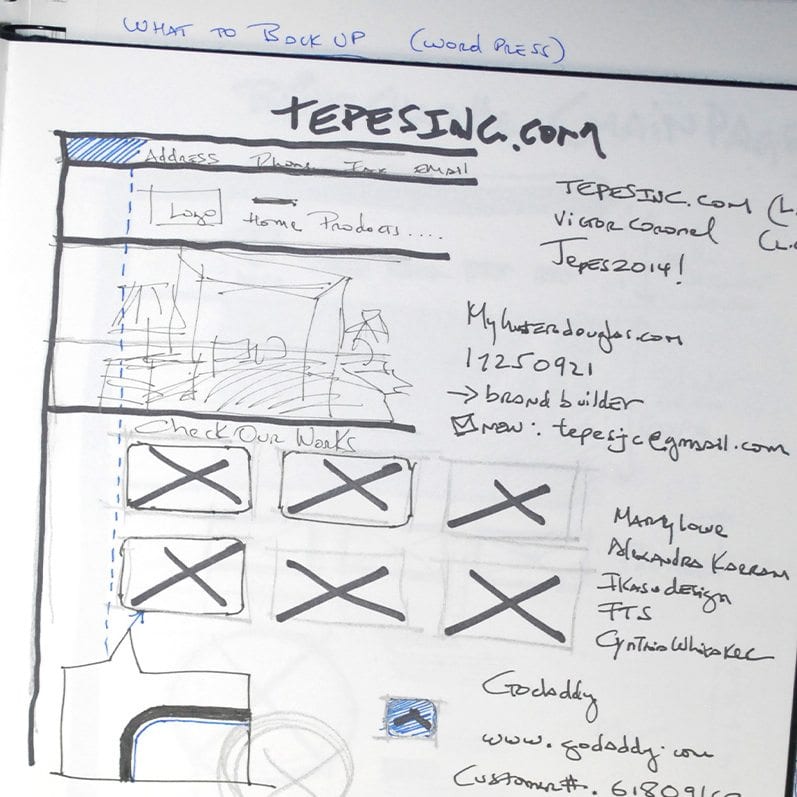 WHAT TO BACK UP (WORD PRESS)
TEPESINC.com
Address Phone Fax email
Logo
Home Products....
Check Our Works
TEPESINC.COM
Victor Coronel
Tepes2014!
Myhunterdouglas.com
11250921
→ brand builder
new: tepesjc@gmail.com
Mary Lowe
Alexandra Karram
Ikasu design
FTS
Cynthia Whitaker
Godaddy
www.godaddy.com
Customer#. 618091